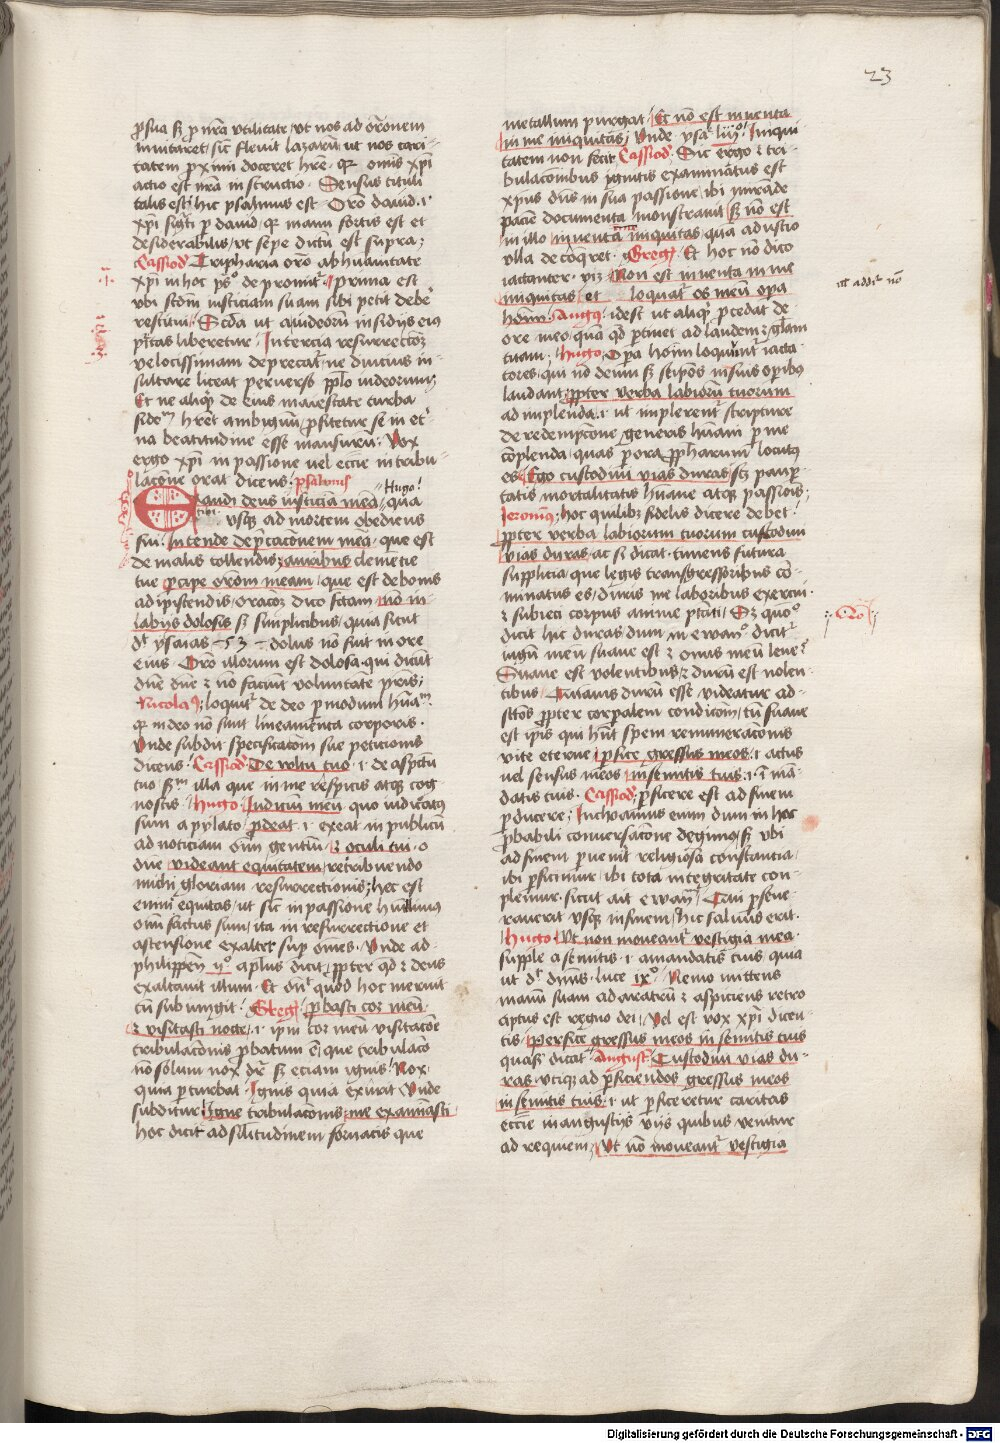 23
p̱sua sꝫ p nr̄a vtilitate / vt nos ad or̄onem
inuitaret / sic fleuit lazarū ut nos cari¬
tatem pximi doceret hr̄e · qr omīs xp̄i
actio est nr̄a instructio · Sensus tituli
talis est / hic psalmus est · Oro dauid · i·
xp̄i sigti p dauid / qr manu fortis est et
desiderabilis / vt sepe dictū est supra ;
Cassiod Tripharia oro ab humanitate
xp̄i in hoc ps° depromitr̄ · prima est
vbi scdm iusticiam suam sibi petit debe
restitui · Scda ut a iudeorū insidijs eius
puritas liberetur · In tercia resurrectoꝫ
velocissimam deprecatr̄ / ne diucius in¬
sultare liceat peruerso pplo iudeorum ;
Et ne aliqꝫ de eius maiestate turba
fidem hret ambiguū / pfitetur se in et¬
na beatitudine esse mansurū · Vox
ergo xp̄i in passione uel eccīe in tribu¬
lacōne orat dicens · psalmus
Exaudi deus iusticiā meā / Hugo / qua
vsqꝫ ad mortem obediens
fui · Intende dep̄cacōnem meā · que est
de malis tollendis / auribus clemētie
tue pcipe orōm meam / que est de bonis
adipiscendis / oracōꝫ dico fctam / nō in
labijs dolosis sꝫ simplicibus / quia sicut
dr̄ ysaias 53 dolus nō fuit in ore
eius · Oro illorum est dolosa · qui dicūt
dn̄e dn̄e ⁊ nō faciūt voluntatē pris ;
Nicolaꝰ / loquitr̄ de deo p modum hūanum
qr in deo nō sunt lineamenta corporis ·
Vnde subdit specificatōm sue peticionis
dicens · Cassiod De vultu tuo · i· de asp̄ctu
tuo sm illa que in me respicis atqꝫ cog
noscis · Hugo Iudiciū meū quo iudicatꝰ
sum a pylato / pdeat · i· exeat in publicū
ad noticiam oīm gentiū / ⁊ oculi tui · o
dn̄e videant equitatem / retribuendo
michi gloriam resurrectionis / hec est
enim equitas / ut sic in passione humilimus
oīm factus sum / ita in resurrectione et
ascensione exalter sup omēs · Vnde ad
philippen ij° ap̄lus dicit / ppter qd ⁊ deus
exaltauit illum · Et om̄i quod hoc meruit
cū subiungit · Greg pbasti cor meū
⁊ visitasti nocte · i· ip̄m cor meū visitacōe
tribulacōnis pbatum ē / que tribulaco
nō solum nox dr̄ sꝫ eciam ignis / Nox
quia pturbat · Ignis quia exurit · Vnde
subditur / Igne tribulacōnis me examinasti
hoc dicit ad similitudinem fornacis que
metallum purgat / Et nō est inuenta
in me iniquitas / Vnde psa liij° Iniqui
tatem non fecit Cassiod · Sic ergo ⁊ tri¬
bulacōibus ignitis examinatus est
xp̄us dn̄s in sua passione / ibi mirāde
pacie documenta monstrauit / sꝫ nō est
in illo inuenta iniquitas / qua adustio
vlla decoq̄ret · Greg · Et hoc nō dico
iactanter · viꝫ Non est inuenta in me
iniquitas / et loquatr̄ os meū opa
hoīm · Augꝰ · idest ut aliqꝫ pcedat de
ore meo / quā qd ptinet ad laudem ⁊ glām
tuam / Hugo / Opa hoīm loquūtr̄ iacta¬
tores / qui nō deum sꝫ seipōs in suis opibus
laudant / ppter verba labiorū tuorum
adimplenda · i· ut implerentr̄ scripture
de redempcōne generis hūani p me
cōplenda / quas p ora pphetarum locutꝰ
es / Ego custodiui vias duras / scꝫ paup
tatis mortalitatis hūane atqꝫ passiōis ;
Ieronimꝰ ; hoc quilibꝫ fidelis dicere debet /
ppter verba labiorum tuorum custodiui
vias duras · ac si dicat · timens futura
supplicia / que legis transgressoribus cō¬
minatus es / duris me laboribus exercui ·
⁊ subieci corpus anime ptati / Sꝫ quo°
dicit hic duras dum in ewan° dicitr̄
iugū meū suaue est ⁊ onus meū leue?
Suaue est volentibus / ⁊ durū est nolen¬
tibus / Quamuis durū esse videatur ad
sc̄tos ppter corpalem condicōm / tn̄ suaue
est ip̄is qui hn̄t spem remuneracōnis
vite eterne / pfice gressus meos · i· actus
uel sensus meos in semitis tuis · i· ī mā¬
datis tuis · Cassiod / pficere est ad finem
pducere ; Inchoamus enim dum in hoc
pbabili conuersacōne degimus / sꝫ vbi
ad finem puenit religiosa constantia /
ibi pficimur / ibi tota integritate con¬
plemur · sicut ait ewan / Qui pseue¬
rauerit vsqꝫ in finem / hic saluus erit ·
Hugo · Vt non moueantr̄ vestigia mea ·
supple a semitis · i· a mandatis tuis quia
ut dr̄ dn̄us · luce ix° · Nemo mittens
manū suam ad aratrū ⁊ aspiciens retro
aptus est regno dei / Vel est vox xp̄i dicen¬
tis · Perfice gressus meos in semitis tuis
quasi dicat · August · Custodiui vias du¬
ras · vtiqꝫ ad pficiendos gressus meos
in semitis tuis · i· ut pficeretur caritas
eccīe in angustijs vijs quibus venitur
ad requiem / Vt nō moueantr̄ vestigia
Digitalisierung gefördert durch die Deutsche Forschungsgemeinschaft - DFG